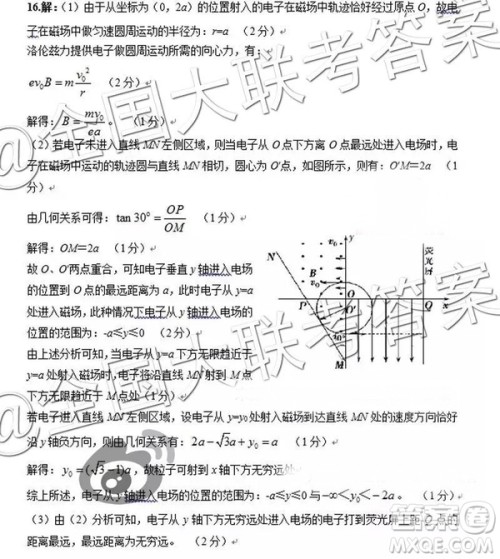 16.解：（1）由于从坐标为（0，2a）的位置射入的电子在磁场中轨迹恰好经过原点 O，故电
子在磁场中做匀速圆周运动的半径为：r=a （2分）
洛伦兹力提供电子做圆周运动所需的向心力，有：
ev₀B = m v₀²/r （2分）
解得：B = mv₀/ea。 （1分）
（2）若电子未进入直线 MN 左侧区域，则当电子从 O 点下方离 O 点最远处进入电场时，电
子在磁场中运动的轨迹圆与直线 MN 相切，圆心为 O′点，如图所示，则有：O′M=2a （1
分）
由几何关系可得：tan 30° = OP/OM （1分）
解得：OM=2a （1分）
故 O、O′两点重合，可知电子垂直 y 轴进入电场
的位置到 O 点的最远距离为 a，此时电子从 y=a
处进入磁场，此种情况下电子从 y 轴进入电场的
位置的范围为：-a≤y≤0 （2分）
由上述分析可知，当电子从 y=a 下方无限趋近于
y=a 处射入磁场时，电子将沿直线 MN 射到 M 点
下方无限趋近于 M 点处（1分）
若电子进入直线 MN 左侧区域，设电子从 y=y₀ 处射入磁场到达直线 MN 处的速度方向恰好
沿 y 轴负方向，则由几何关系有：2a－√3a＋y₀＝a （1分）
解得：y₀＝(√3－1)a，故粒子可射到 x 轴下方无穷远处
综上所述，电子从 y 轴进入电场的位置的范围为：-a≤y≤0 与 -∞＜y₀＜－2a。 （1分）
（3）由（2）分析可知，电子从 y 轴下方无穷远处进入电场的电子打到荧光屏上距 Q 点的
距离最远，最远距离为无穷远。 （2分）
N
y
v₀
荧光屏
B
v₀
P
O
O′
Q
x
M
@全国大联考答案
@全国大联考答案
@全国大联考答案
答案圈